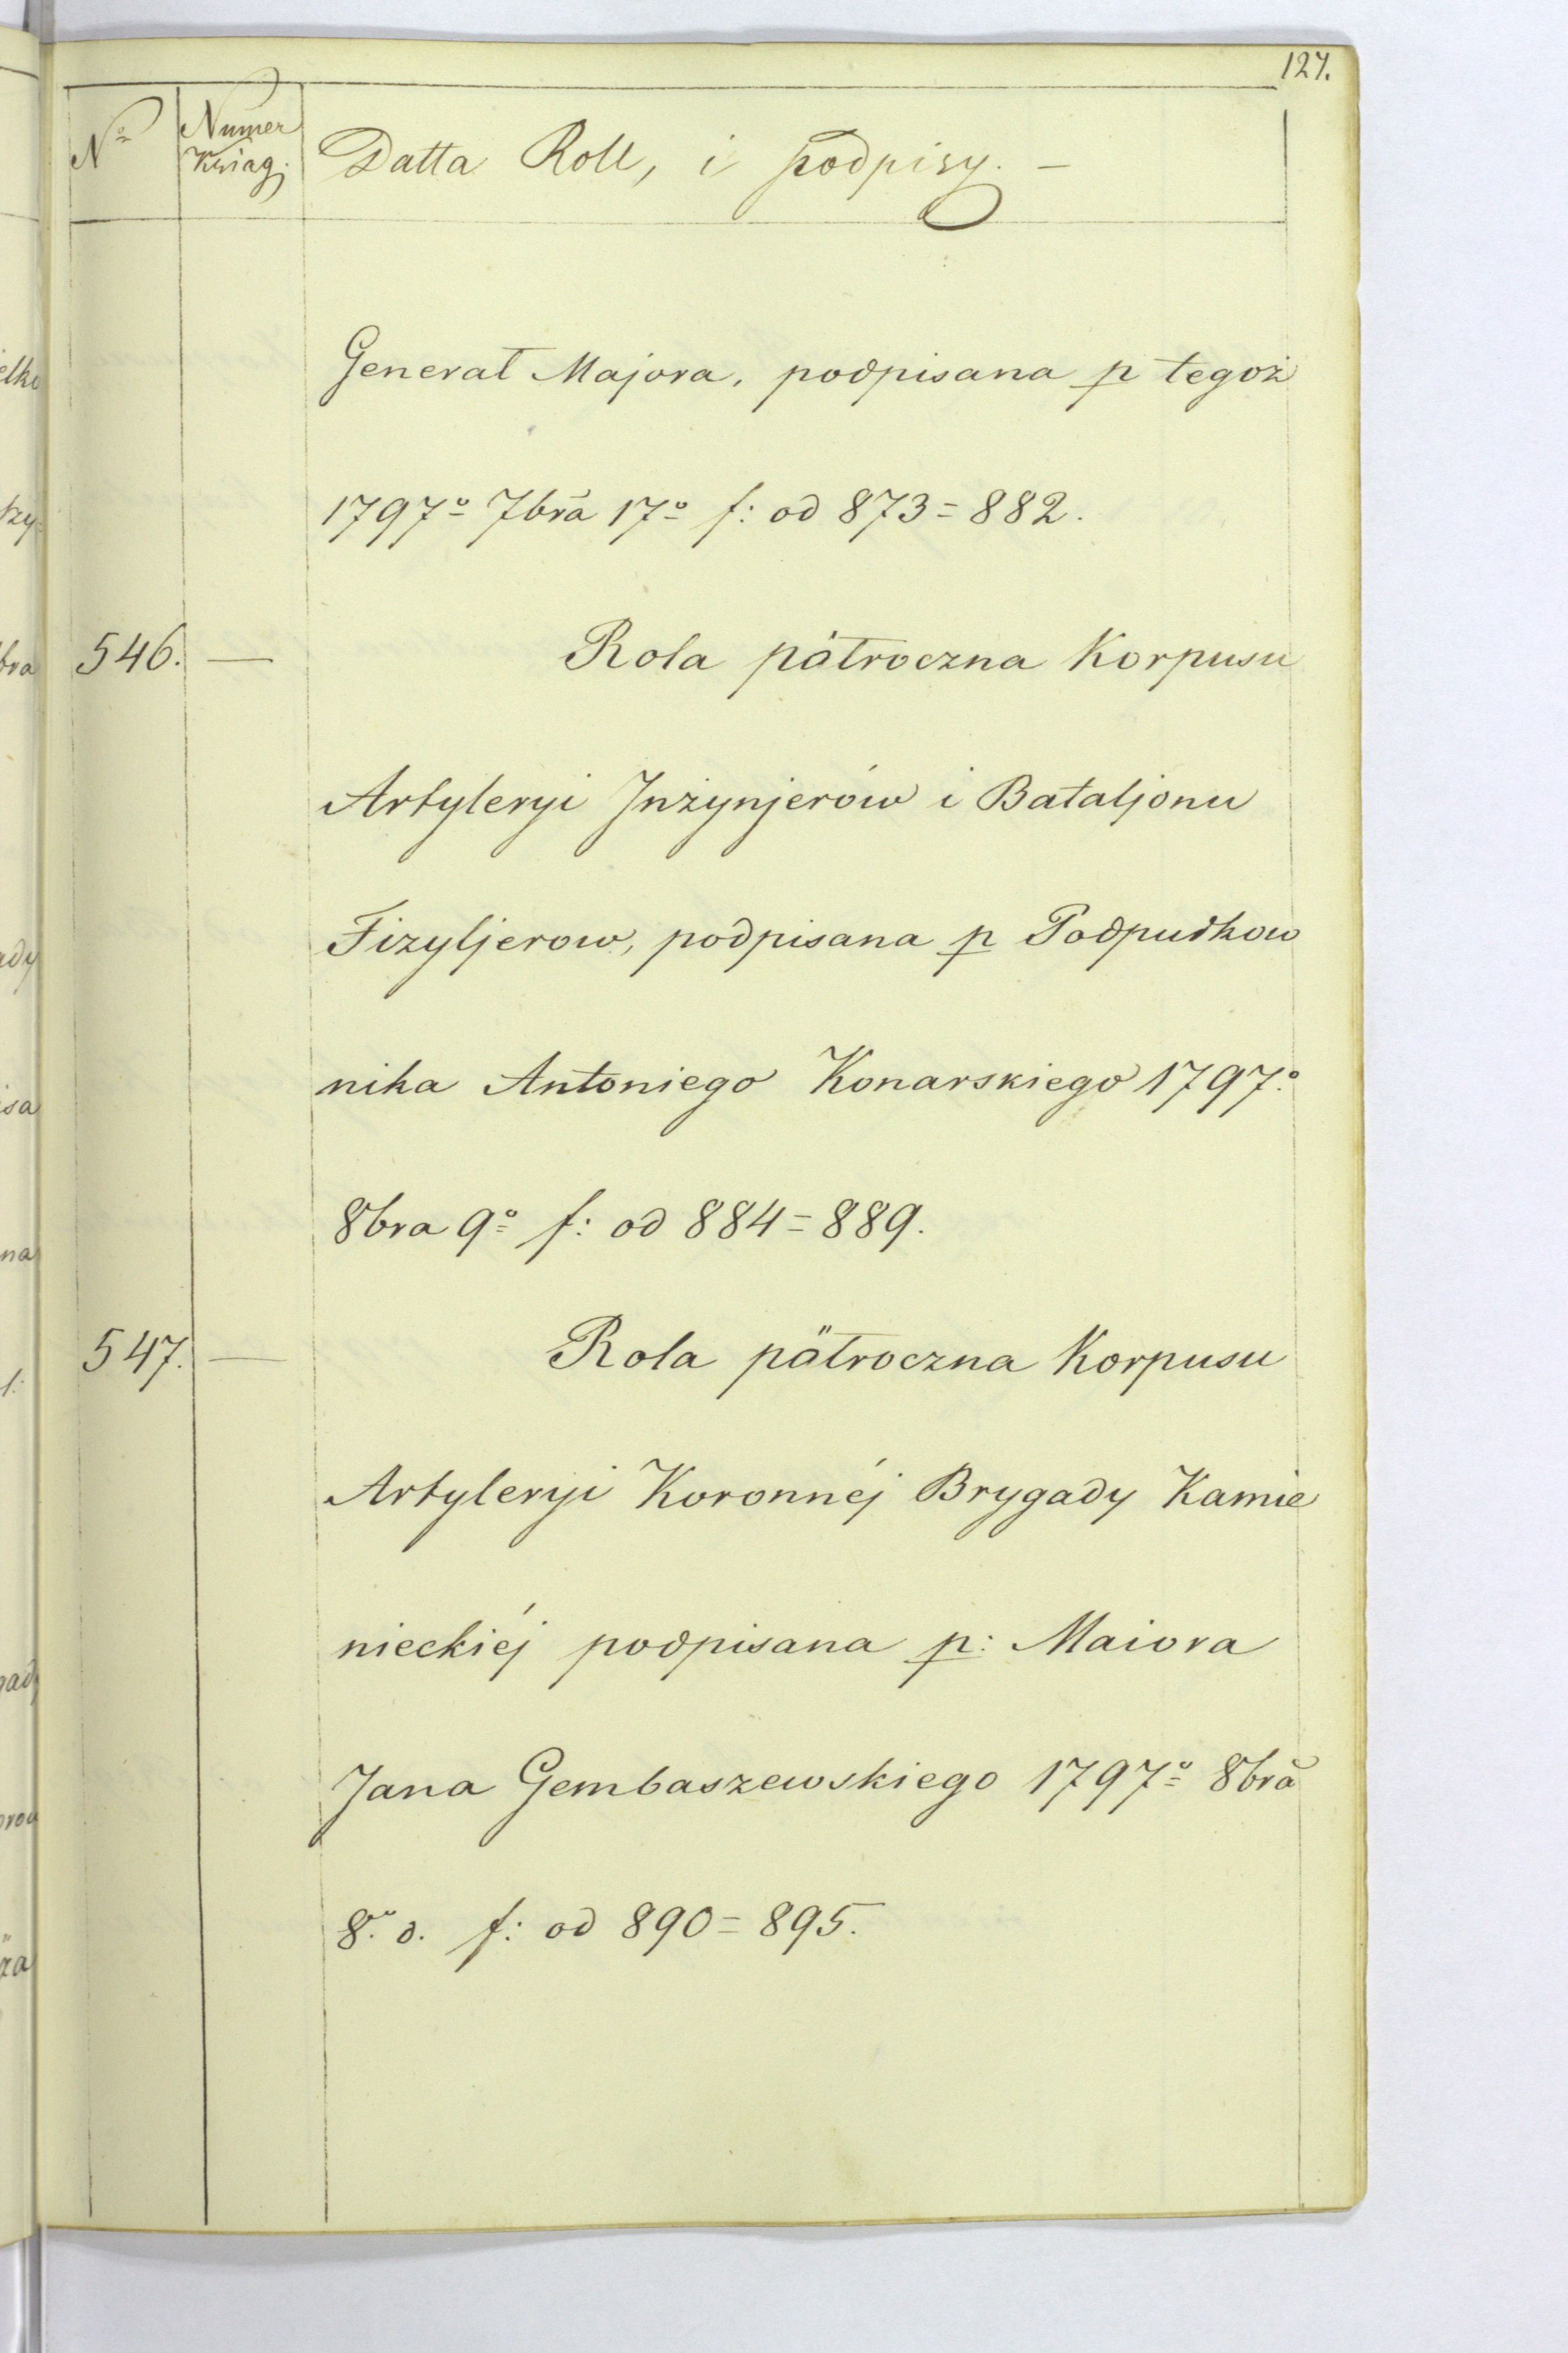 127.
Nº Numer Książ. Datta Roll, i podpisy. —
Generał Majora, podpisana p tegoż
1797º 7bra 17º f: od 873=882.
546. — Rola pätroczna Korpusu
Artyleryi Jnżynjerów i Bataljonu
Fizyljerow, podpisana p Podpułkow
nika Antoniego Konarskiego 1797º
8bra 9º f: od 884=889.
547. — Rola pätroczna Korpusu
Artyleryi Koronnéj Brygady Kamie
nieckiéj podpisana p: Maiora
Jana Gembaszewskiego 1797º 8bra
f: od 890=895.